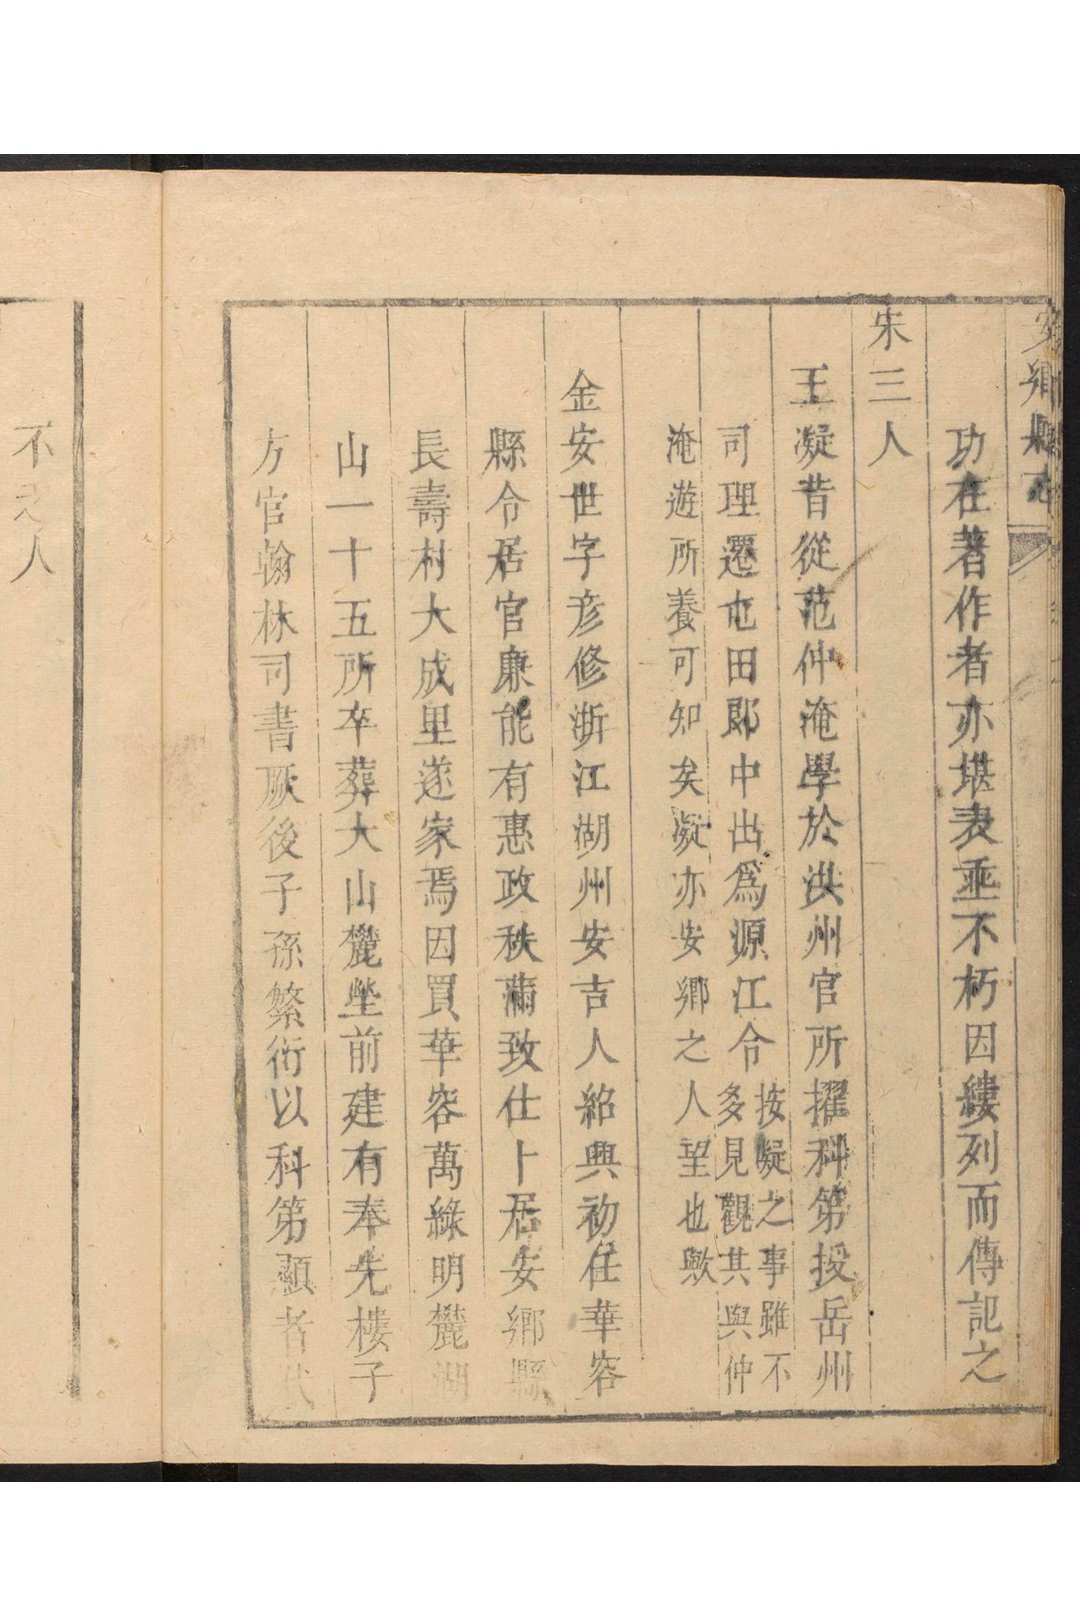 安鄉縣志
功在著作者亦堪表垂不朽因縷列而傳記之
宋三人
王凝昔從范仲淹學於洪州官所擢科第授岳州
司理遷屯田郎中出爲源江令
按凝之事雖不
多見觀其與仲
淹遊所養可知矣凝亦安鄉之人望也歟
金安世字彦修浙江湖州安吉人紹興初任華容
縣令居官廉能有惠政秩滿致仕卜居安鄉縣
長壽村大成里遂家焉因買華容萬綠明麓湖
山一十五所卒葬大山麓塋前建有奉先樓子
方官翰林司書厥後子孫繁衍以科第顯者代
不人